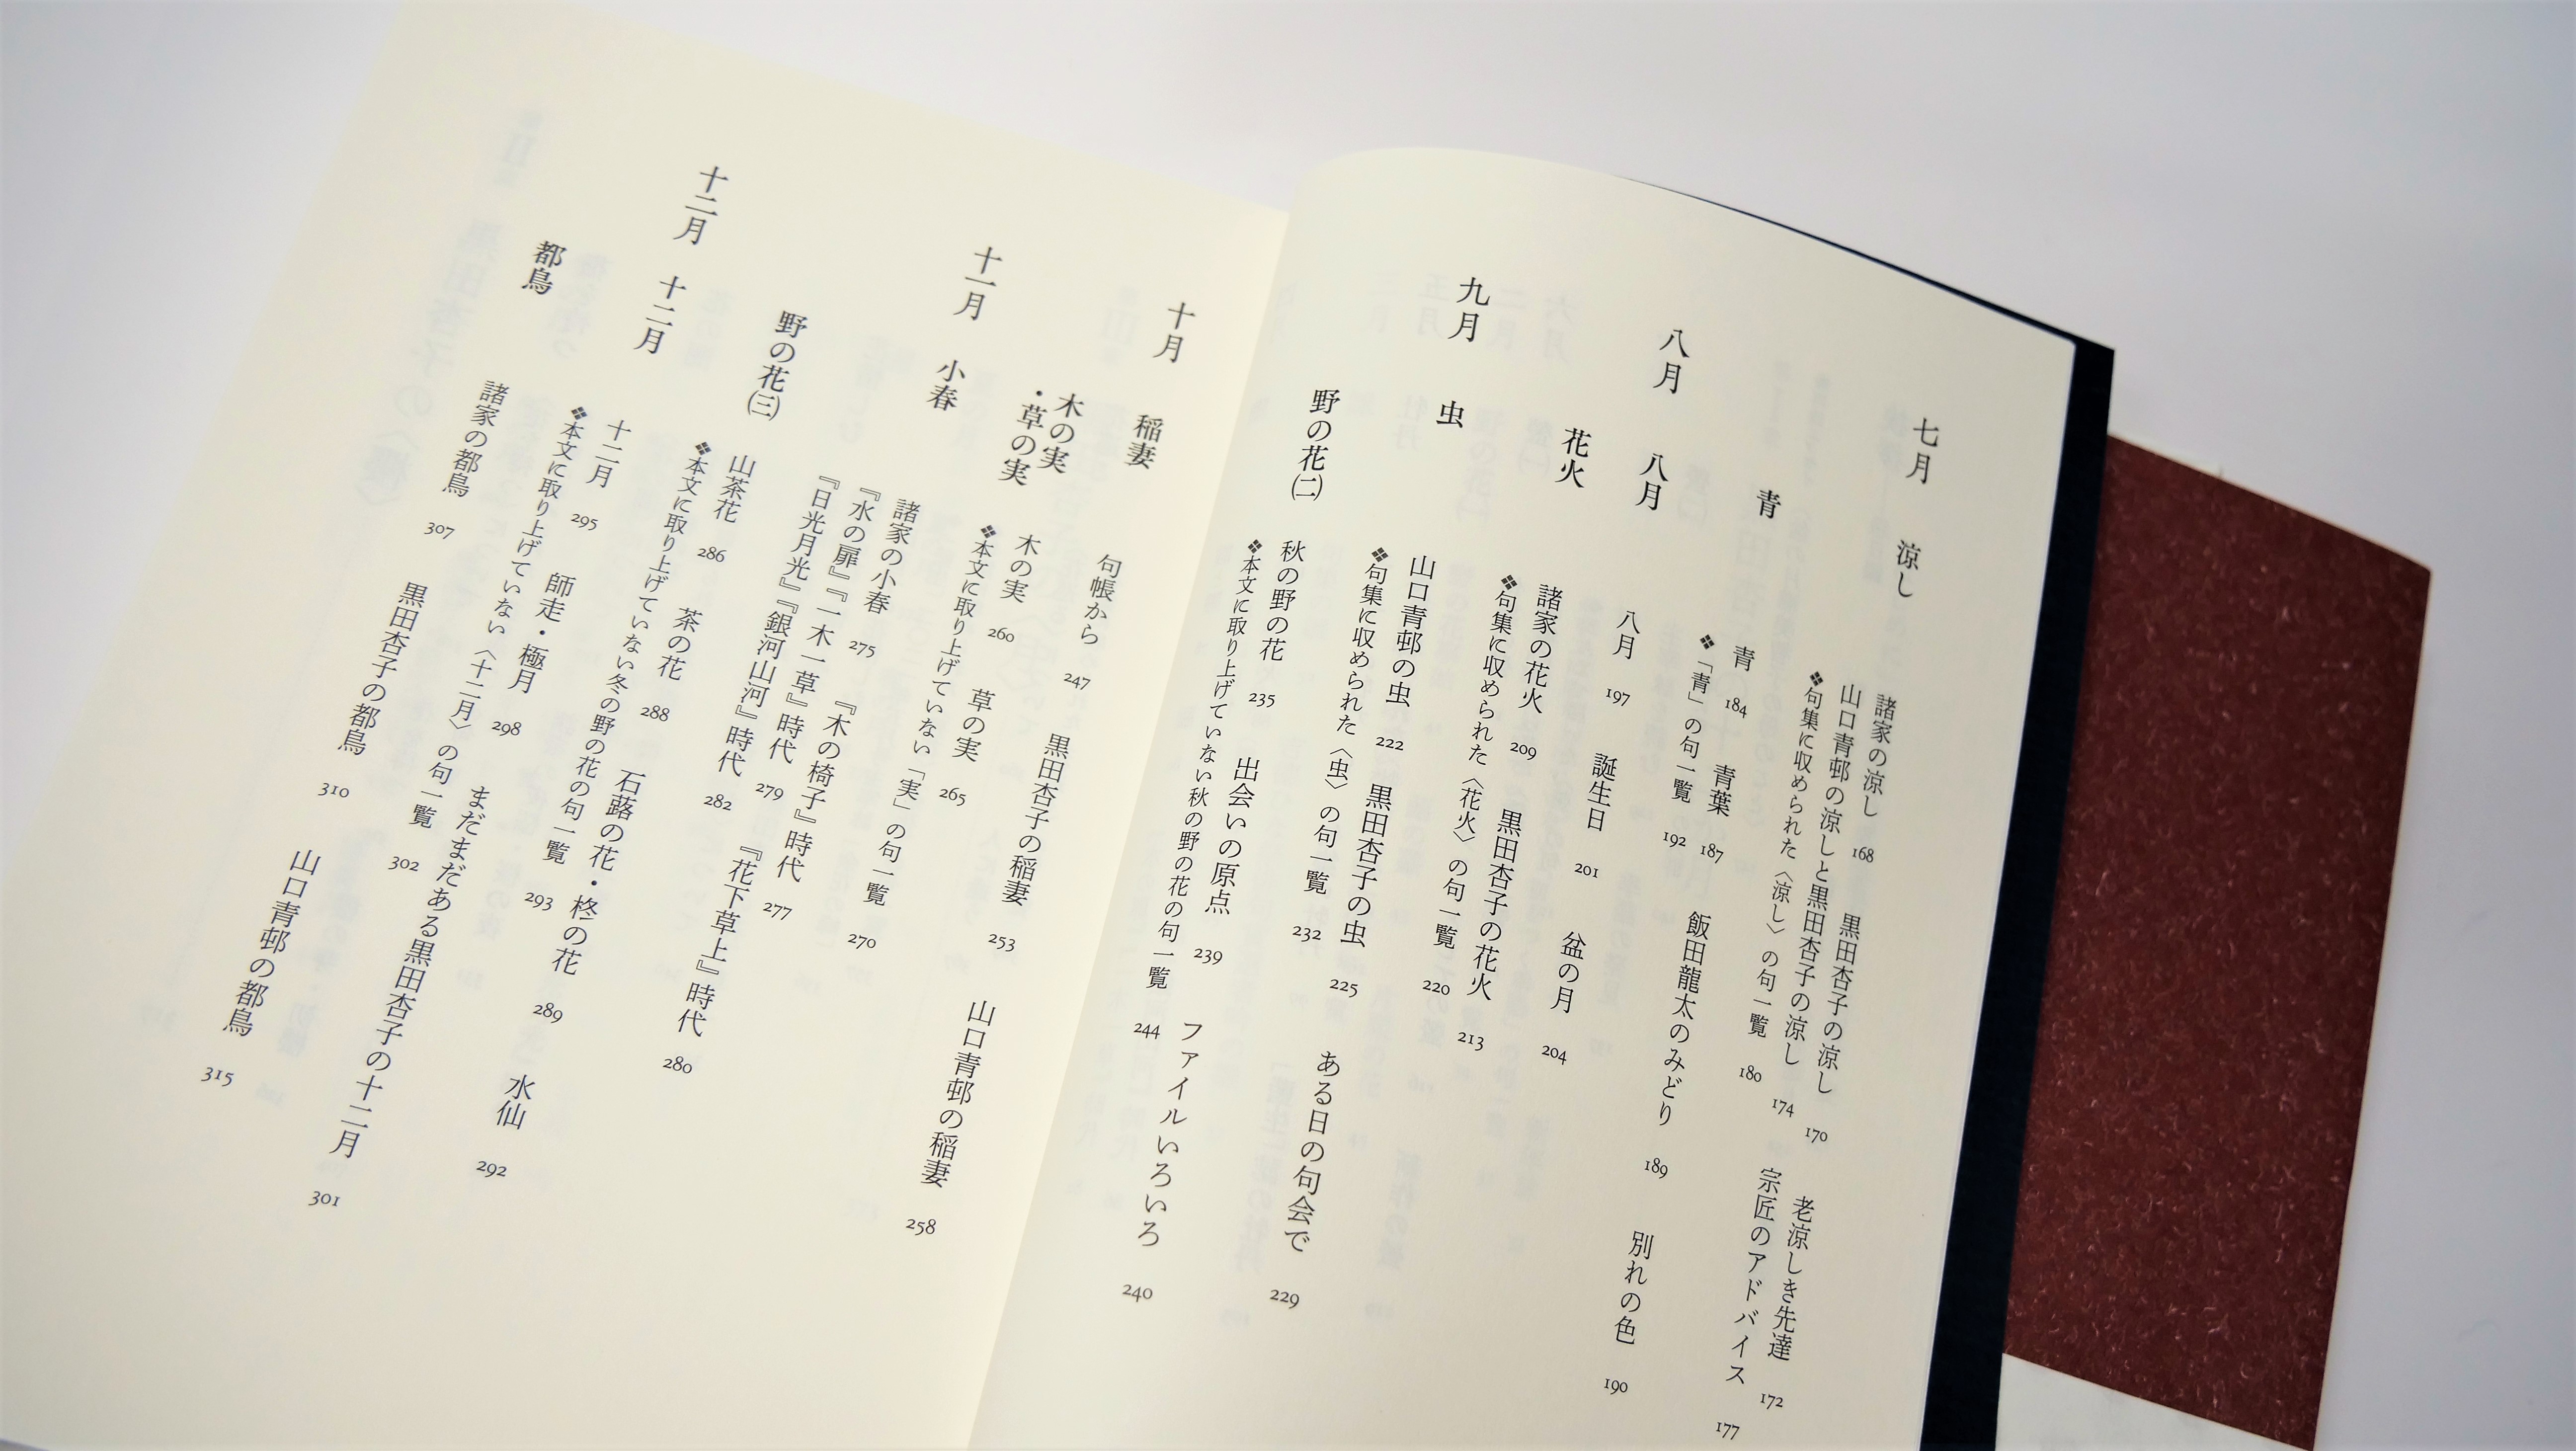 七月 涼し
諸家の涼し 168 黒田杏子の涼し 170 老涼しき先達 172
山口青邨の涼しと黒田杏子の涼し 174 宗匠のアドバイス 177
❖句集に収められた〈涼し〉の句一覧 180
青
青 184 青葉 187 飯田龍太のみどり 189 別れの色 190
❖「青」の句一覧 192
八月 八月
八月 197 誕生日 201 盆の月 204
花火
諸家の花火 209 黒田杏子の花火 213
❖句集に収められた〈花火〉の句一覧 220
九月 虫
山口青邨の虫 222 黒田杏子の虫 225 ある日の句会で 229
❖句集に収められた〈虫〉の句一覧 232
野の花(二)
秋の野の花 235 出会いの原点 239 ファイルいろいろ 240
❖本文に取り上げていない秋の野の花の句一覧 244
十月 稲妻
句帳から 247 黒田杏子の稲妻 253 山口青邨の稲妻 258
木の実
・草の実
木の実 260 草の実 265
❖本文に取り上げていない「実」の句一覧 270
十一月 小春
諸家の小春 275
『水の扉』『一木一草』時代 279 『木の椅子』時代 277
『日光月光』『銀河山河』時代 282 『花下草上』時代 280
野の花(三)
山茶花 286 茶の花 288 石蕗の花・柊の花 289 水仙 292
❖本文に取り上げていない冬の野の花の句一覧 293
十二月 十二月
十二月 295 師走・極月 298 まだまだある黒田杏子の十二月 301
❖本文に取り上げていない〈十二月〉の句一覧 302
都鳥
諸家の都鳥 307 黒田杏子の都鳥 310 山口青邨の都鳥 315